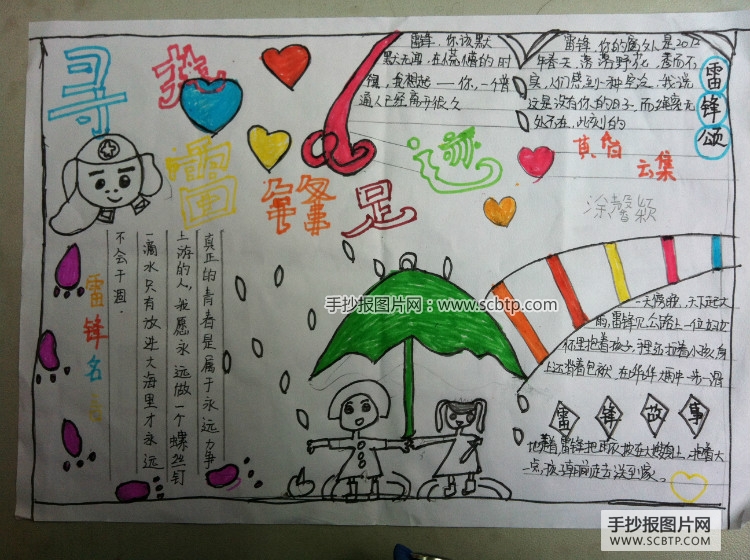 寻 热
雷 锋 足 迹
雷锋，你该默
默无闻，在人情的时
候，我想起一一你，一个普
通人已经离开很久
雷锋，你的离人是2012
年春天，
实，人们感到一种空，我说
这是没有你的日子，而雄突无
处不在，此刻的
雷锋颂
真
云集
涂馨颖
雷锋名言
真正的青春是属于永远力争
上游的人，我愿永远做一个螺丝钉
一滴水只有放进大海里才永远
不会干涸.
手抄报图片网：www.scbtp.com
一天傍晚，天下起大
雨，雷锋见公路上一位妇女
怀里抱着孩子，手里还拉着小孩，身
上还背着包袱，在哗哗大雨中一步一滑
雷 锋 故 事
地走着，雷锋把雨衣披在大嫂身上，抱着大
一点，孩，朝前走去，送到家。
手抄报图片网
WWW.SCBTP.COM